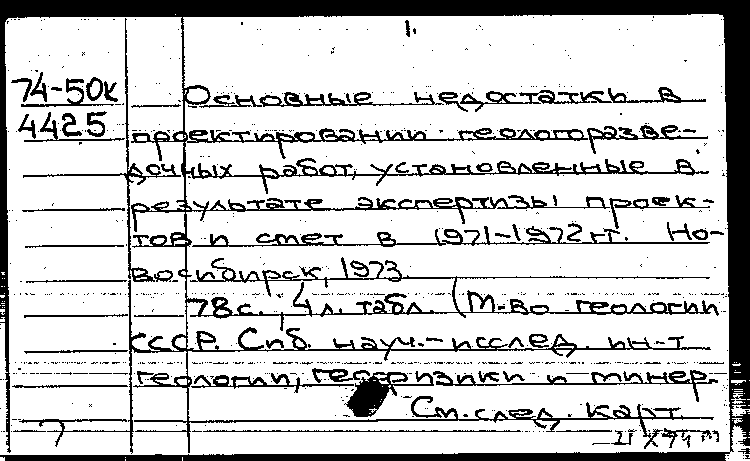 1.
74-50к Основные недостатки в
4425 проектировании геологоразве-
дочных работ, установленные в
результате экспертизы проек-
тов и смет в 1971-1972 гг. Но-
восибирск, 1973.
78 с.; 4 л. табл. (М-во геологии
СССР. Сиб. науч.-исслед. ин-т
геологии, геофизики и минер.
См. след. карт
21 X 74